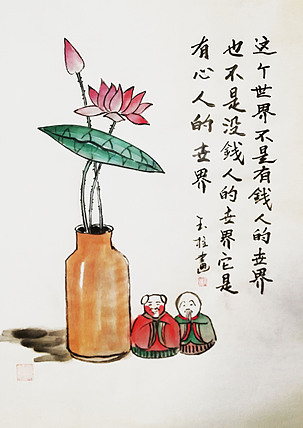 这个世界不是有錢人的世界
也不是没錢人的世界它是
有心人的世界
畫